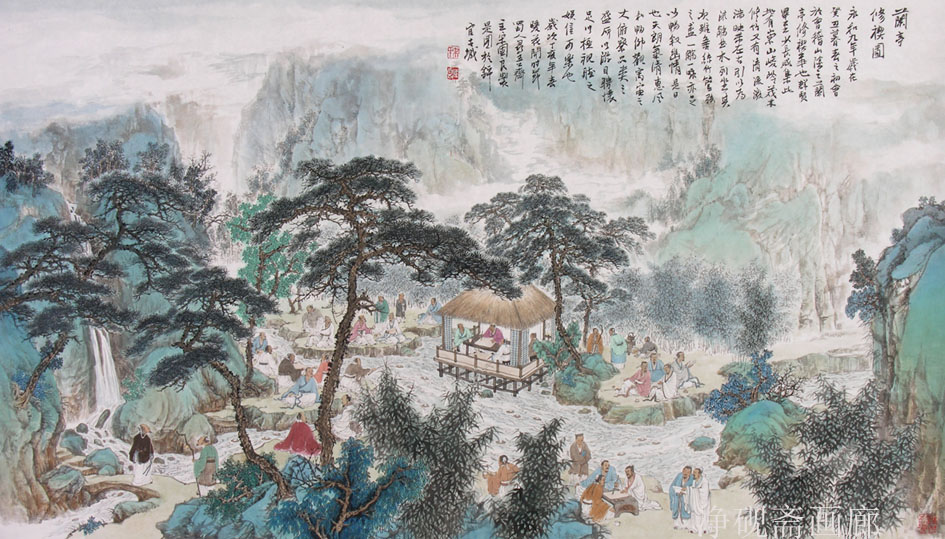 蘭亭
修禊圖
永和九年歲在
癸丑暮春之初會
於會稽山陰之蘭
亭修禊事也群賢
畢至少長咸集此
地有崇山峻岭茂林
修竹又有清流激
湍映帶左右引以為
流觴曲水列坐其
次雖無絲竹管弦
之盛一觴一詠亦足
以暢敘幽情是日
也天朗氣清惠風
和暢仰觀宇宙之
大俯察品類之
盛所以游目騁懷
足以極視聽之
娛信可樂也
歲次丁亥年春
花開時節
蜀人
是圖於錦
官古城
净砚斋画廊